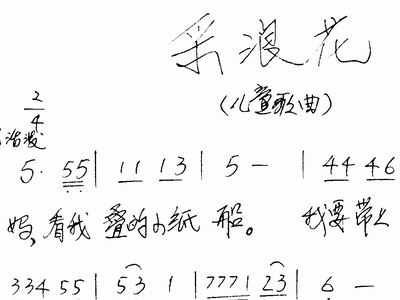 采浪花
(儿童歌曲)
2/4
活泼
5· 55 | 11 13 | 5 — | 44 46
妈,看我叠的小纸船。 我要带上
334 55 | 53 1 | 7771 23 | 6 —